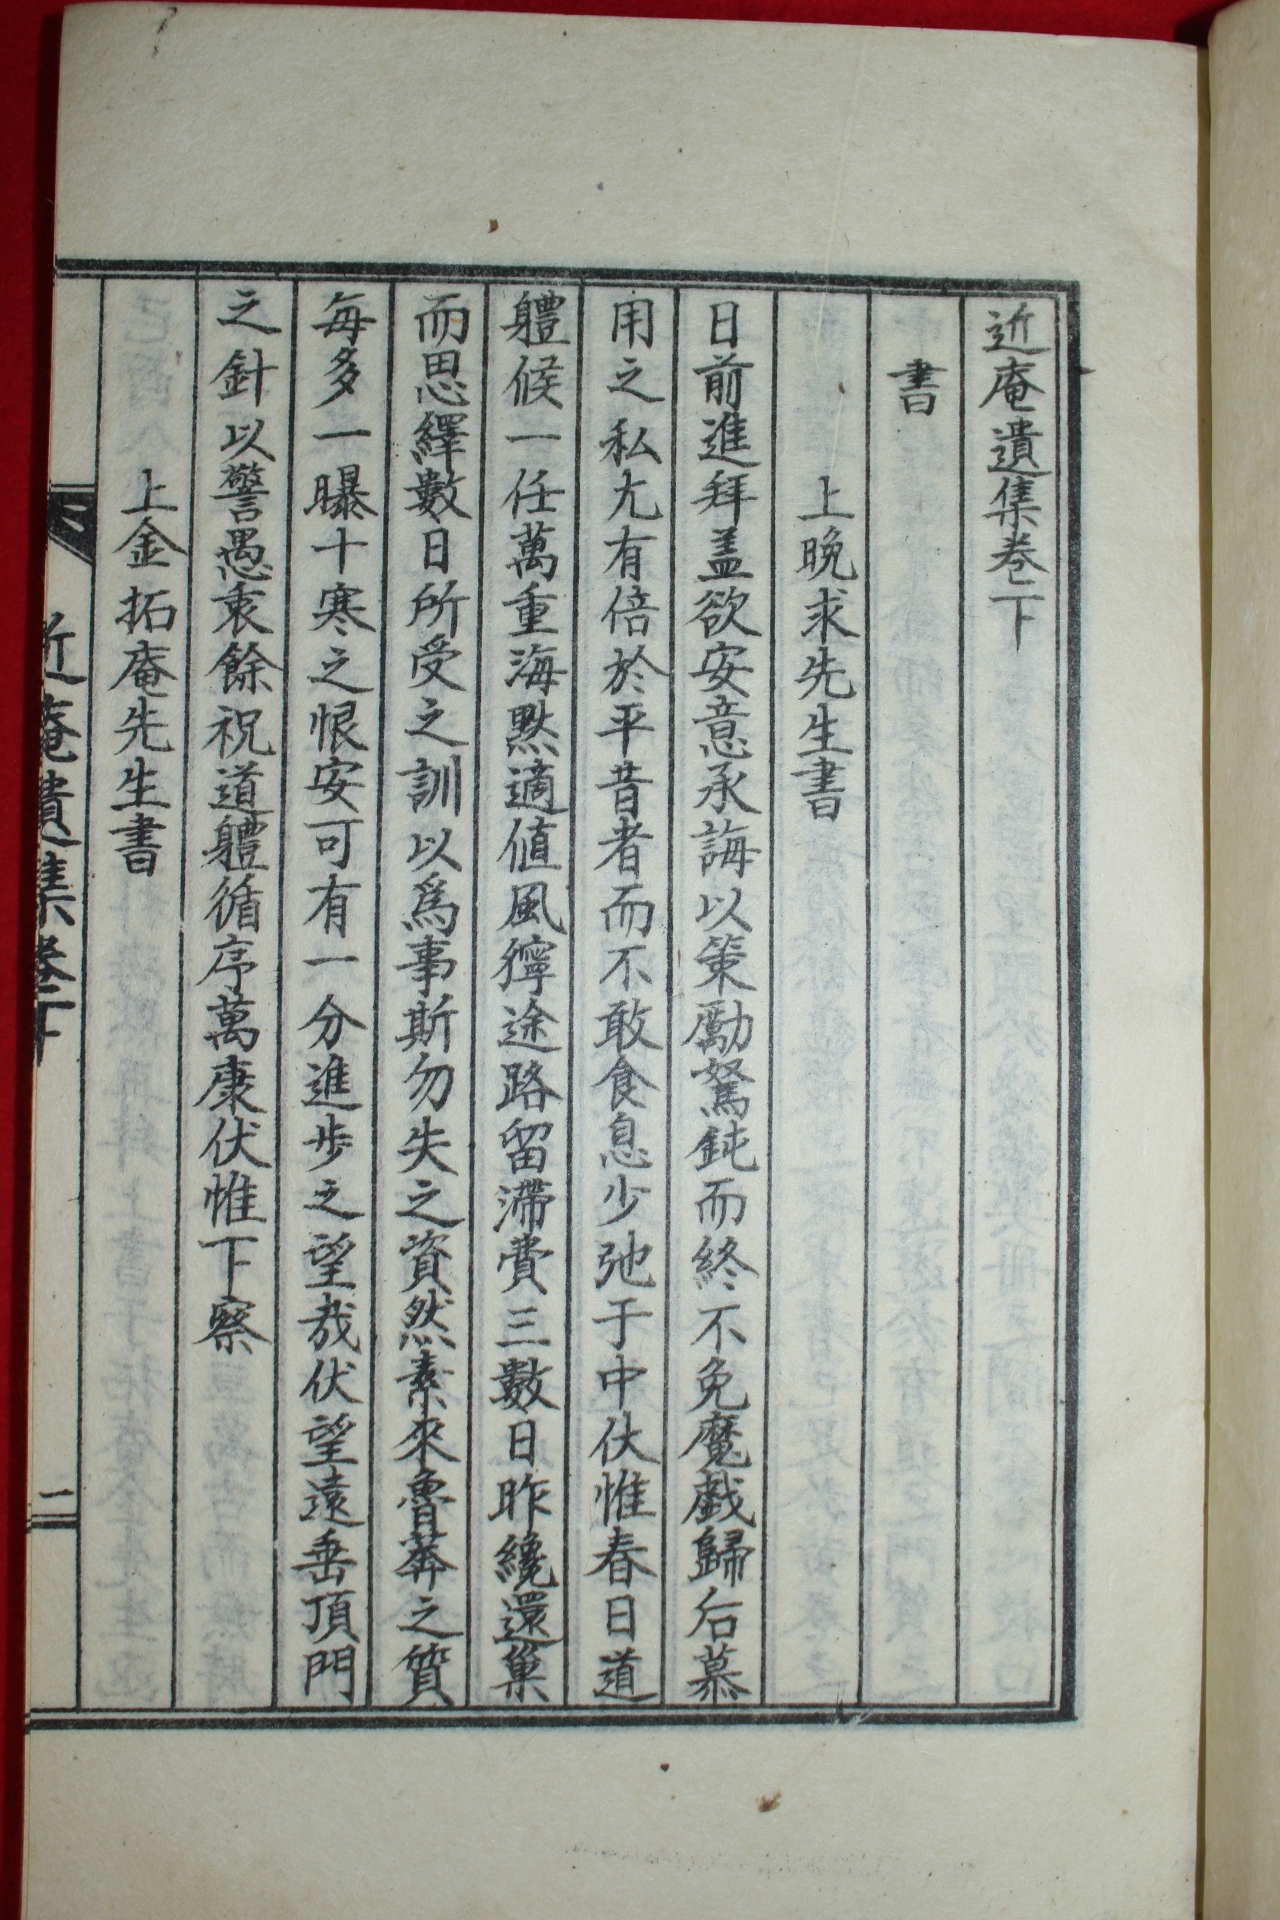 近庵遺集卷之下
書
上晩求先生書
日前進拜盖欲安意承誨以策勵駑鈍而終不免魔戱歸后慕
用之私尤有倍於平昔者而不敢食息少弛于中伏惟春日道
軆候一任萬重海默適値風㝫途路留滯費三數日昨纔還巢
而思繹數日所受之訓以爲事斯勿失之資然素來魯莽之質
每多一曝十寒之恨安可有一分進步之望哉伏望遠垂頂門
之針以警愚衷餘祝道軆循序萬康伏惟下察
上金拓庵先生書
近庵遺集卷下
一